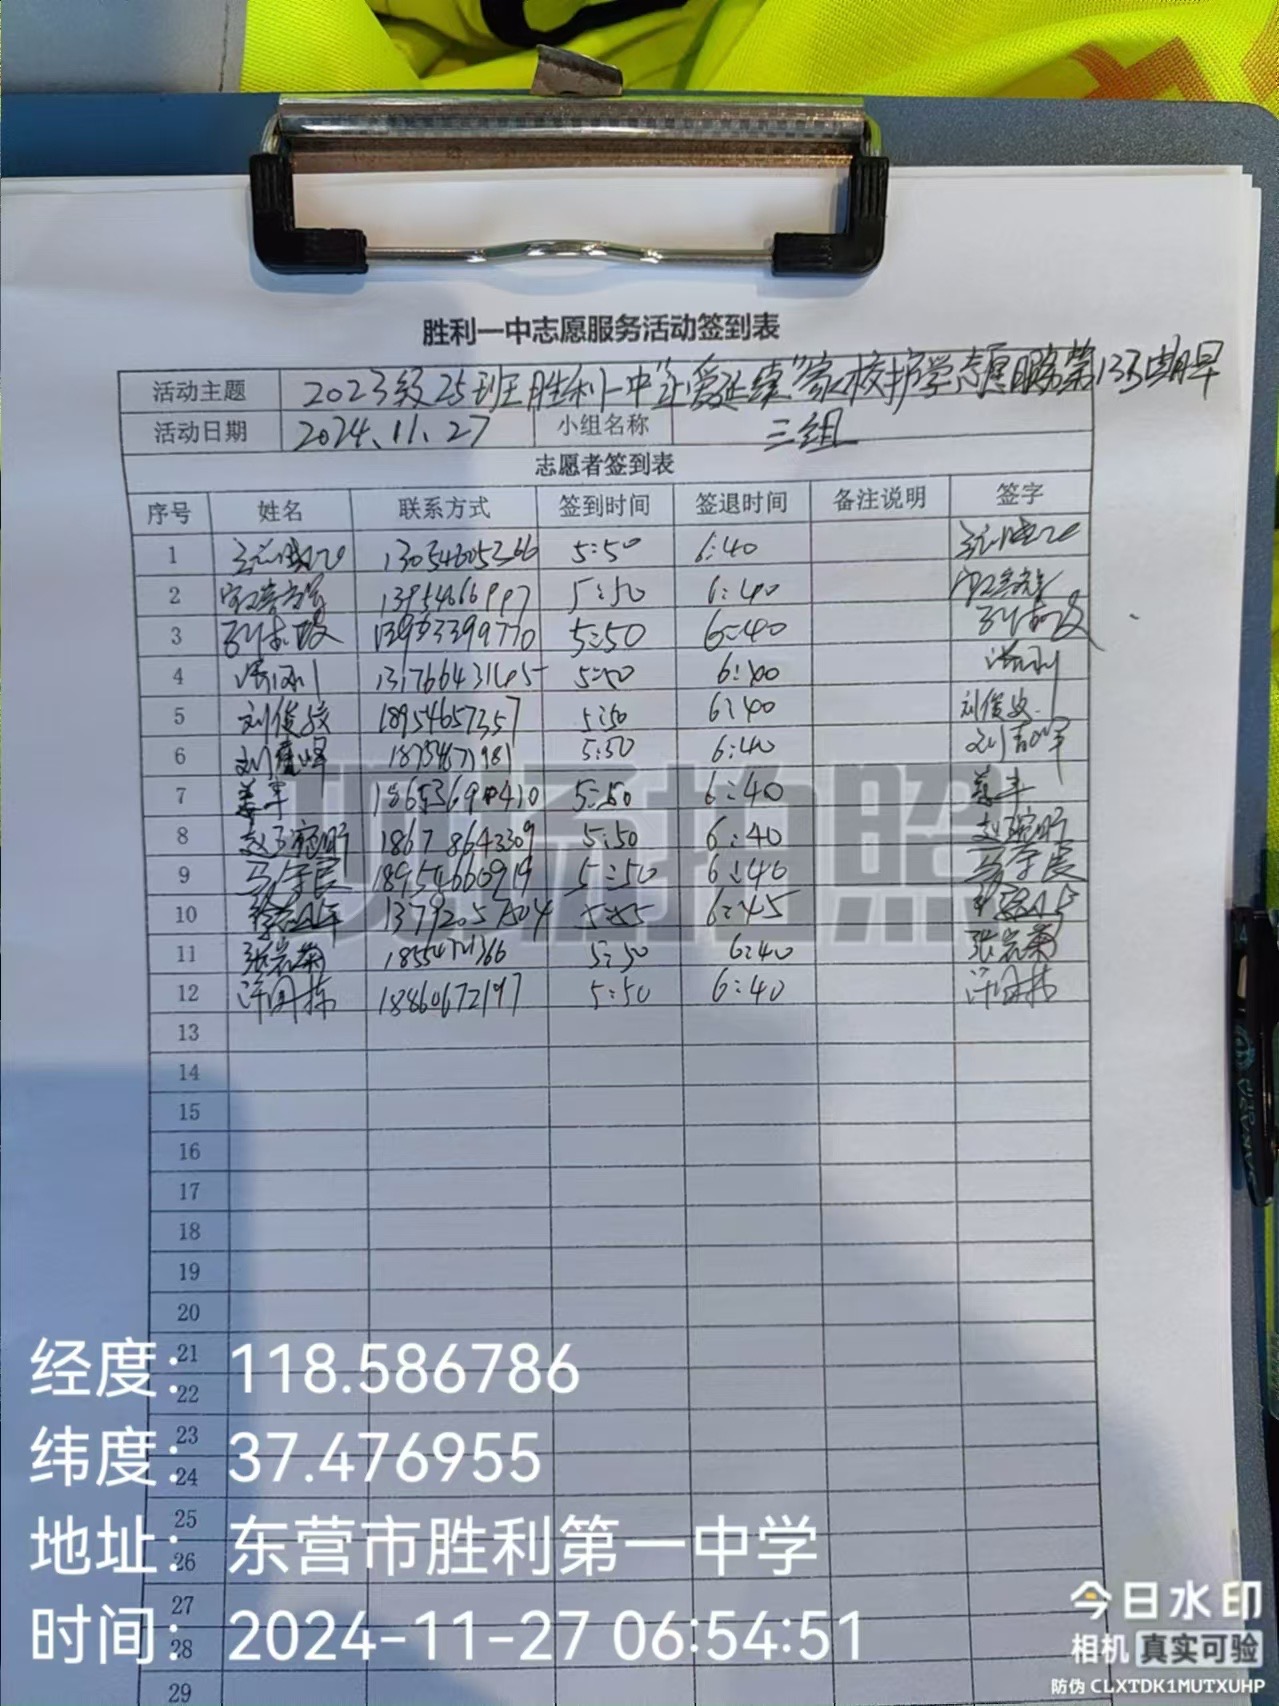 胜利一中志愿服务活动签到表
活动主题 2023级25班胜利一中"让爱延续"家校护学志愿服务第133期早
活动日期 2024.11.27 小组名称 三组
志愿者签到表
序号 姓名 联系方式 签到时间 签退时间 备注说明 签字
1 13054605366 5:50 6:40
2 5:50 6:40
3 5:50 6:40
4 5:50
5 刘俊 18954657357 5:50 6:40 刘俊
6 刘 18754671981 5:50 6:40 刘
7 姜军 5:50 6:40 姜军
8 赵 18678643309 5:50 6:40 赵
9 马学良 18954660919 5:50 6:40 马学良
10 13792057504 5:55 6:45
11 张岩菊 5:50 6:40 张岩菊
12 许国栋 18860672197 5:50 6:40 许国栋
13
14
15
16
17
18
19
20
21
22
23
24
25
26
27
28
29
现场拍照
经度：118.586786
纬度：37.476955
地址：东营市胜利第一中学
时间：2024-11-27 06:54:51
今日水印
相机 真实可验
防伪 CLXTDK1MUTXUHP